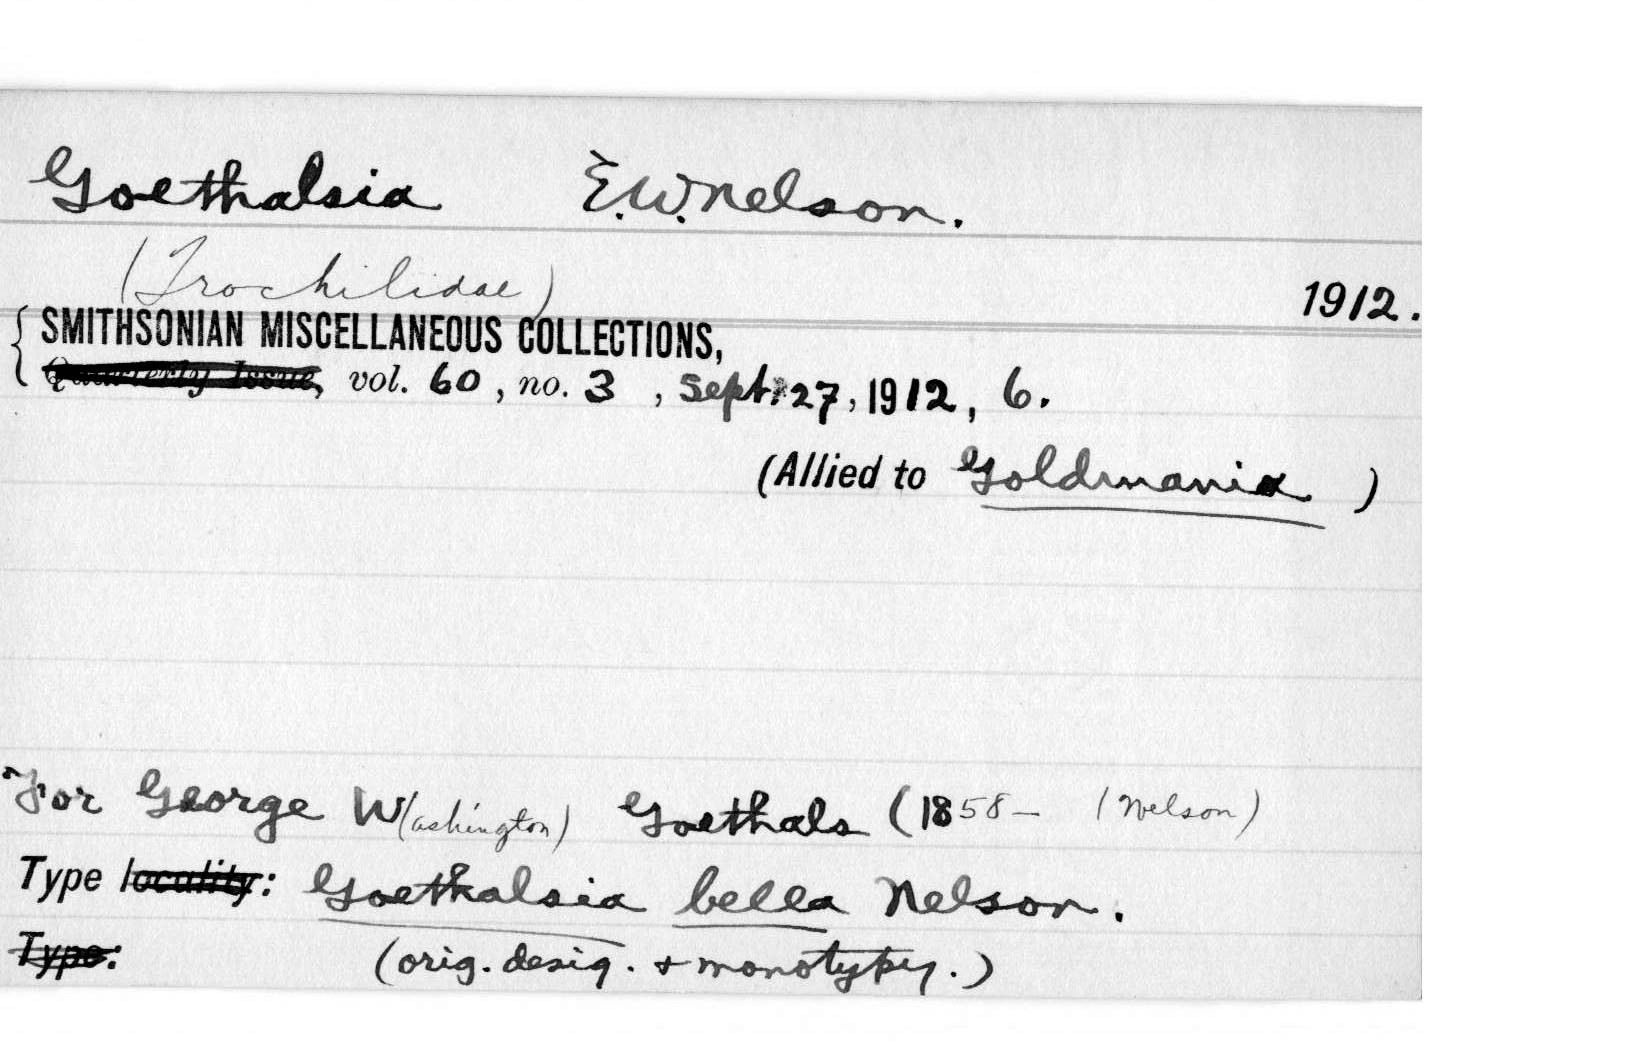 Goethalsia E.W. Nelson.
(Trochilidae)
1912.
{ SMITHSONIAN MISCELLANEOUS COLLECTIONS,
Quarterly Issue, vol. 60, no. 3, Sept. 27, 1912, 6.
(Allied to Goldmania)
For George W(ashington) Goethals (1858– (Nelson)
Type locality: Goethalsia bella Nelson.
Type: (orig. desig. + monotypy.)